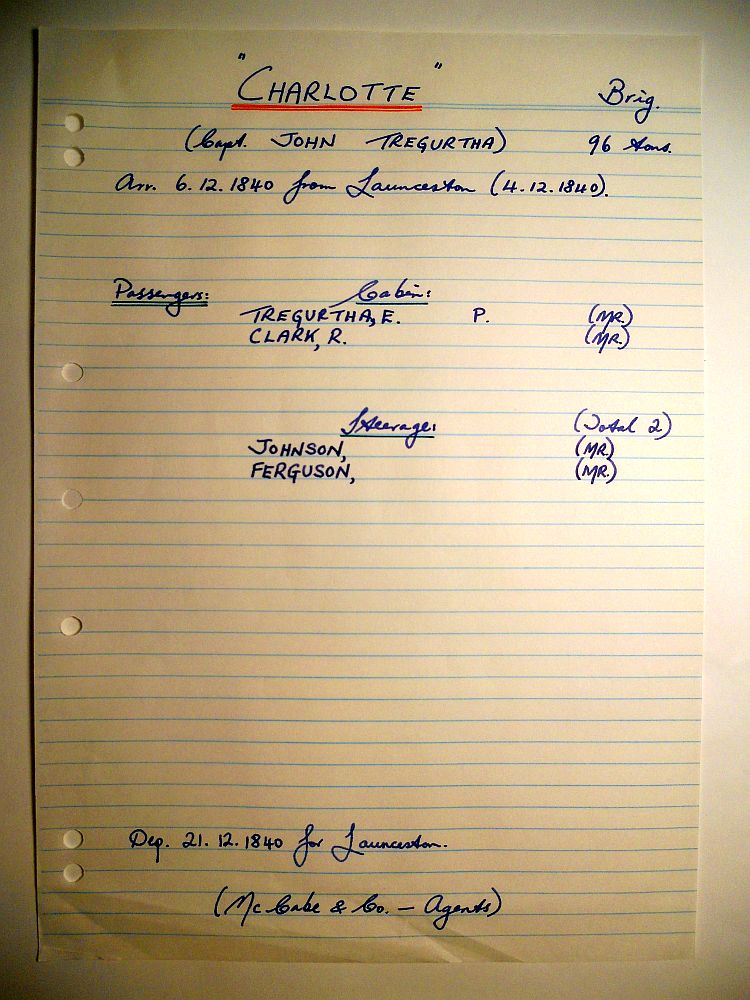 "CHARLOTTE" Brig.
(Capt. JOHN TREGURTHA) 96 tons.
Arr. 6.12.1840 from Launceston (4.12.1840).
Passengers: Cabin:
TREGURTHA, E. P. (MR.)
CLARK, R. (MR.)
Steerage: (Total 2)
JOHNSON, (MR)
FERGUSON, (MR.)
Dep. 21.12.1840 for Launceston.
(McCabe & Co. – Agents)